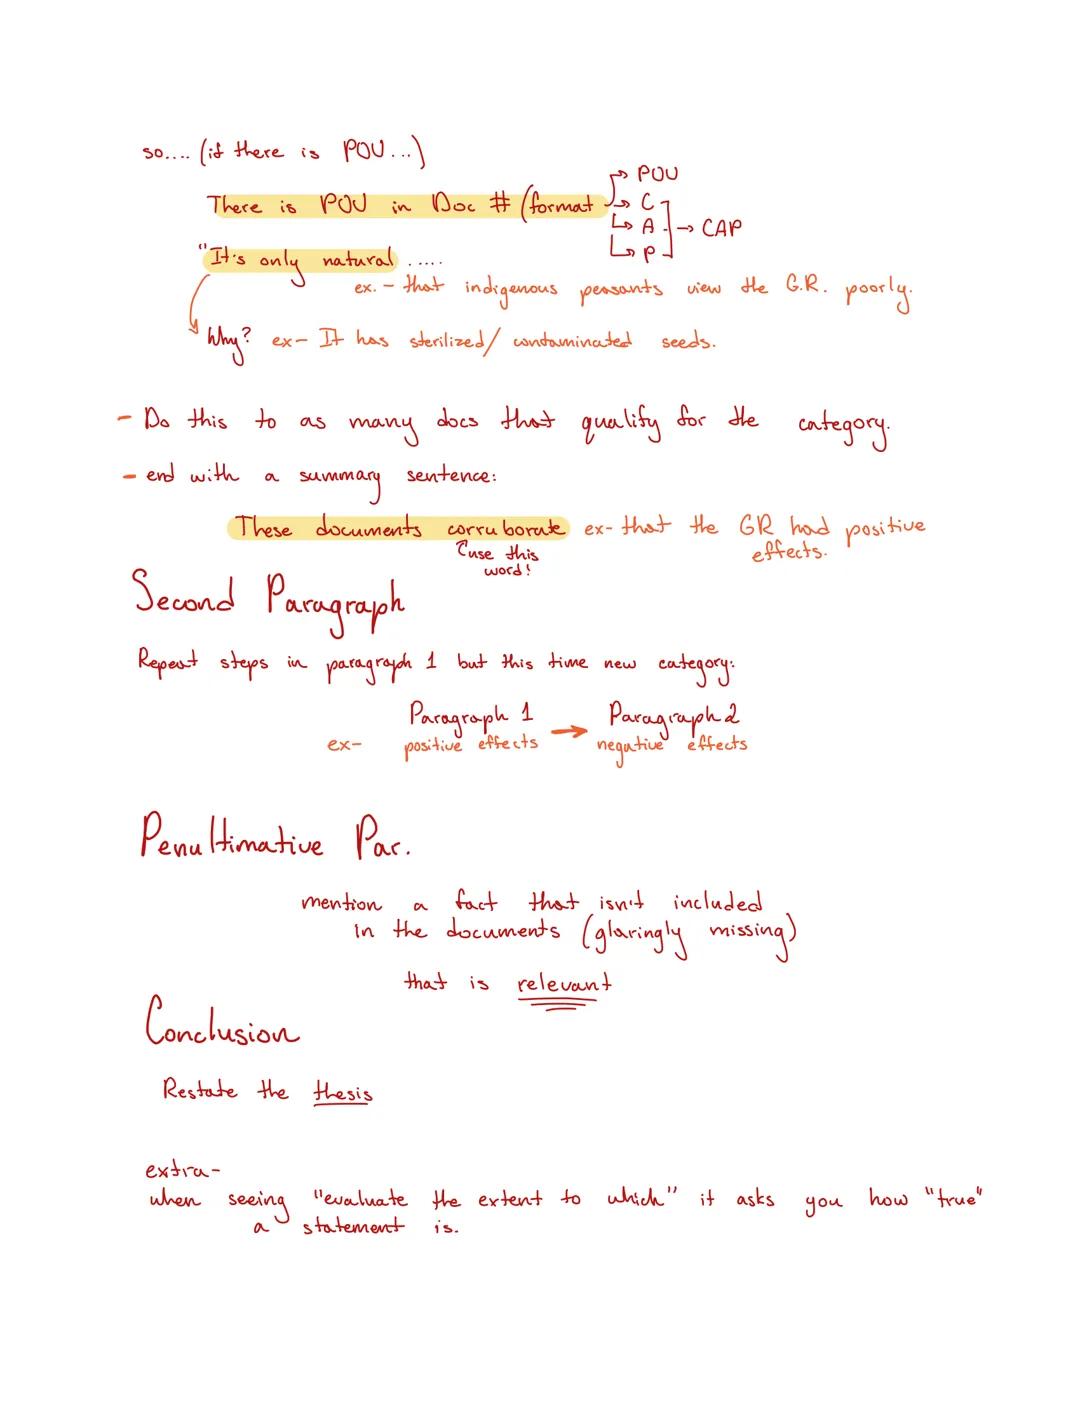 so.... (if there is POV...)
There is POV in Doc # (format → POV
→ C
→ A → CAP
→ P
"It's only natural .....
ex. - that indigenous peasants view the G.R. poorly.
Why? ex- It has sterilized/ contaminated seeds.
- Do this to as many docs that qualify for the category.
- end with a summary sentence:
These documents corruborate ex- that the GR had positive effects.
use this word!
Second Paragraph
Repeat steps in paragraph 1 but this time new category:
Paragraph 1 → Paragraph 2
ex- positive effects negative effects
Penultimative Par.
mention a fact that isn't included
in the documents (glaringly missing)
that is relevant
Conclusion
Restate the thesis
extra-
when seeing "evaluate the extent to which" it asks you how "true"
a statement is.